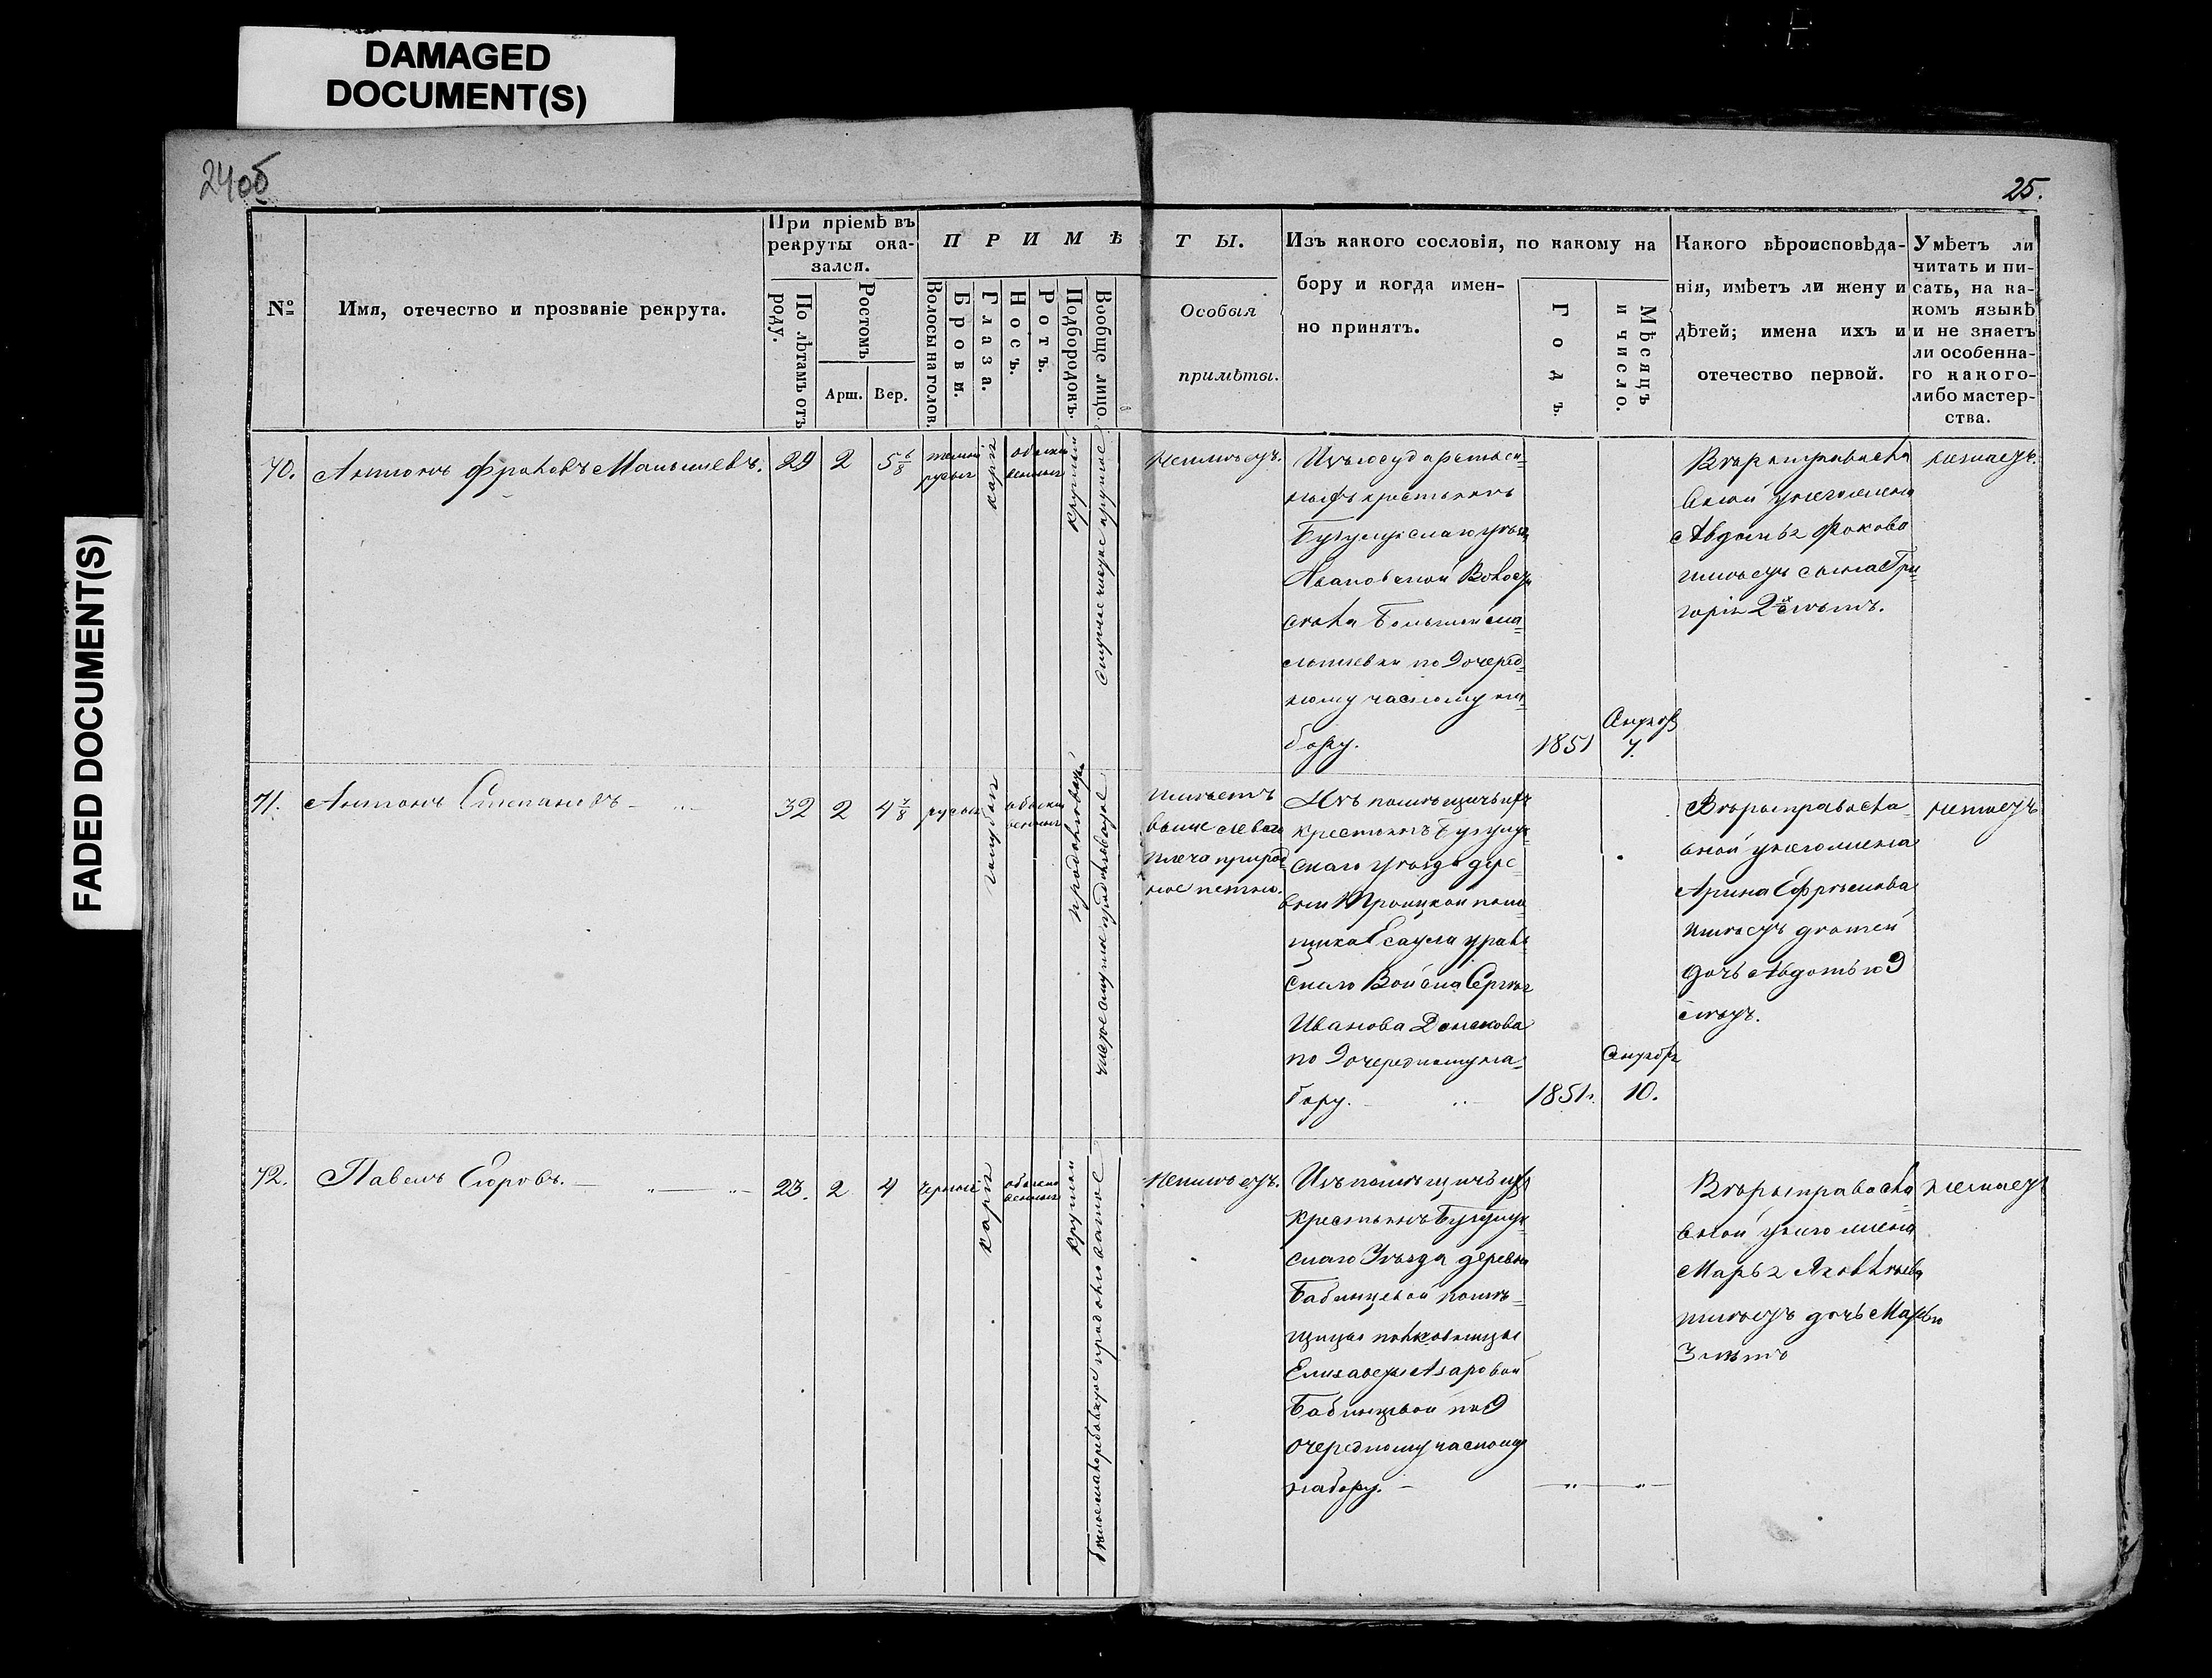 DAMAGED
DOCUMENT(S)
FADED DOCUMENT(S)
24об
25.
№
Имя, отечество и прозваніе рекрута.
При пріемѣ въ
рекруты ока-
зался.
По лѣтамъ отъ
роду.
Ростомъ
Арш.
Вер.
ПРИМѢ
Волосы на голов.
Брови.
Глаза.
Носъ.
Ротъ.
Подбородокъ.
Вообще лицо.
ТЫ.
Особыя
примѣты.
Изъ какого сословія, по какому на
бору и когда имен-
но принятъ.
Годъ.
Мѣсяцъ
и число.
Какого вѣроисповѣда-
нія, имѣетъ ли жену и
дѣтей; имена ихъ и
отечество первой.
Умѣетъ ли
читать и пи-
сать, на ка-
комъ языкѣ
и не знаетъ
ли особенна-
го какого-
либо мастер-
ства.
70.
Антонъ Фроловъ Малышевъ.
29
2
5 6/8
темно
русыя
каріе
обыкно
венныя
круглый
чистое круглое
неимѣетъ.
Изъ государствен=
ныхъ крестьянъ
Бузулукскаго уѣзда
Волости
села Большой ма=
лышевки по 9 очеред=
ному частному на=
бору.
1851
Октября
7.
Вѣры православ
вной у него жена
Авдотья Фокова
имѣетъ сына Гри=
горія 2х лѣтъ.
незнаетъ.
71.
Антонъ Степановъ
32
2
4 7/8
русыя
голубыя
обыкно
венныя
продолговатый
чистое смуглое продолговатое
имѣетъ
выше леваго
плеча природ=
ное пятно.
Изъ помѣщичьихъ
крестьянъ Бузулук=
скаго уѣзда дере=
вни Троицкой помѣ
щика Есаула урал
скаго Войска Сергея
Иванова Донскова
по 9 очередному на=
бору.
1851.
Октября
10.
Вѣры православ=
вной у него жена
Арина Ефремова
имѣетъ детей
дочь Авдотью 9
лѣтъ.
незнаетъ
72.
Павелъ Егоровъ.
23.
2
4
черные
карія
обыкно
венныя
круглый
бѣлое продолговатое
Неимѣетъ.
Изъ помѣщичьихъ
крестьянъ Бузулук=
скаго Уѣзда деревни
Бабинцевой помѣ=
щицы полковницы
Елизаветы Азаровой
Бабинцевой по 9
очередному частному
набору.
Вѣры православ
вной у него жена
Марья Яковлева
имѣетъ дочь Марью
3 лѣтъ
незнаетъ